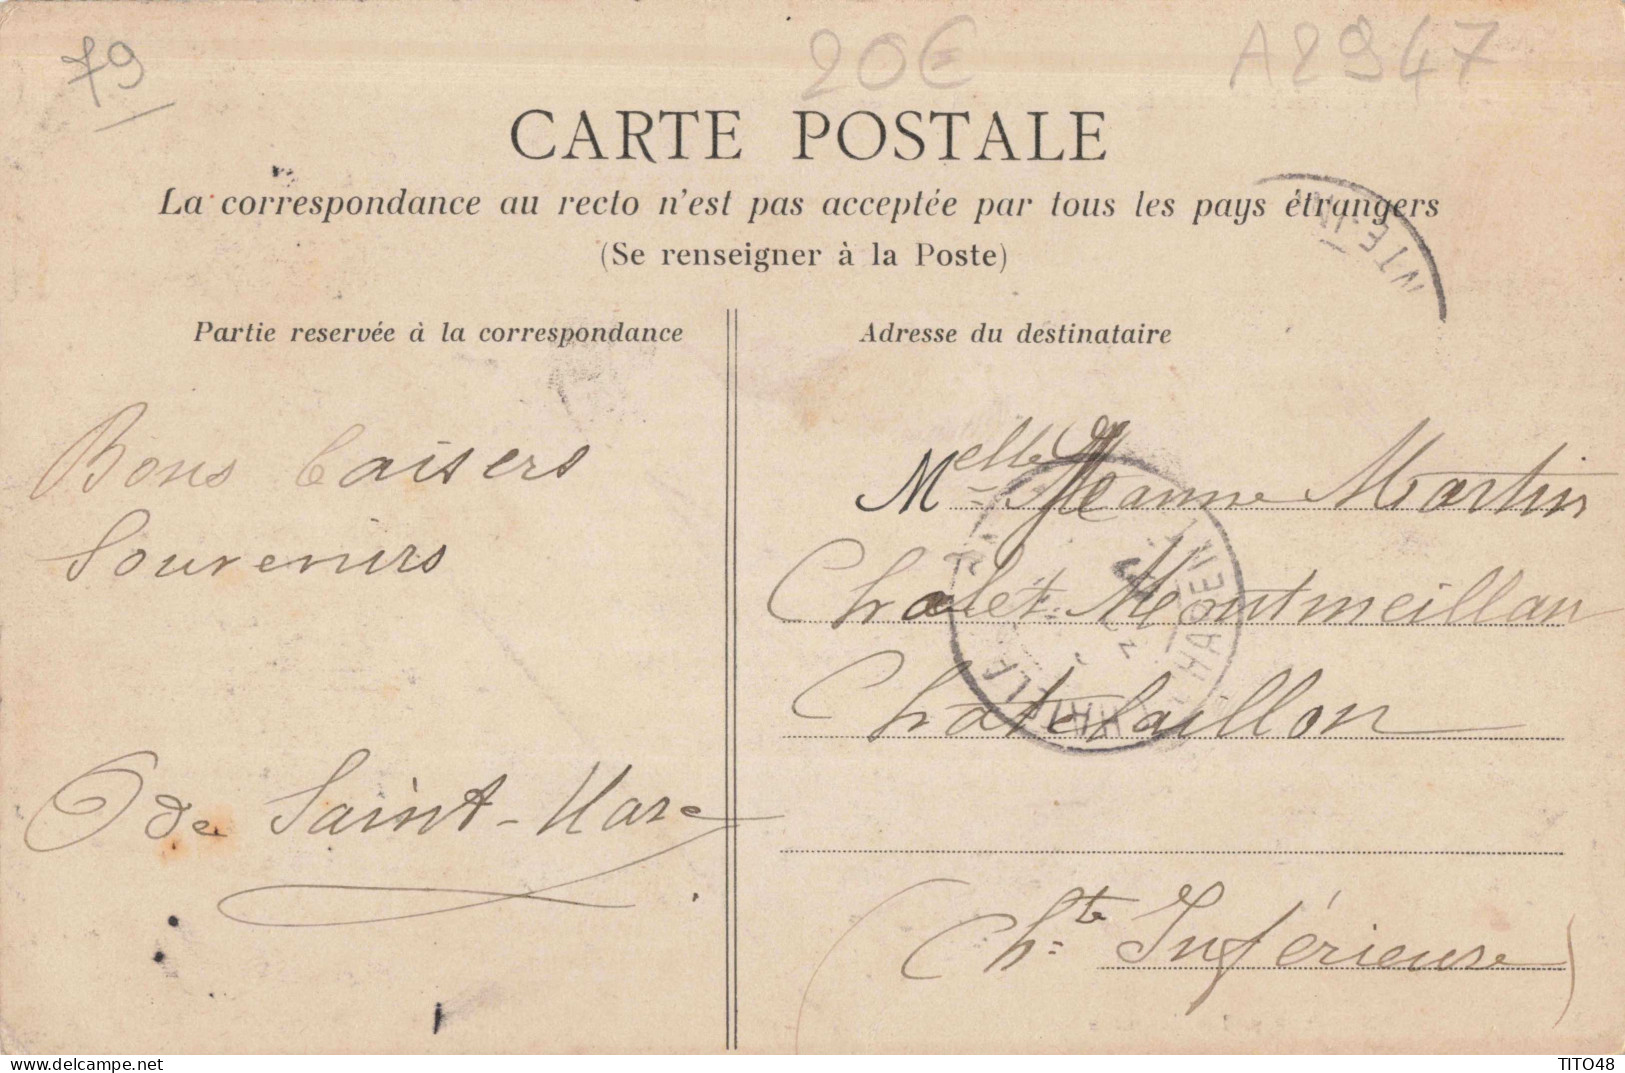 79
20€
A2947
CARTE POSTALE
La correspondance au recto n'est pas acceptée par tous les pays étrangers
(Se renseigner à la Poste)
Partie reservée à la correspondance
Bons baisers
Souvenirs
de Saint-Mare
Adresse du destinataire
Melle Jeanne Martin
Chalet Montmeillan
Châtelaillon
(Chte Inférieure)
delcampe.net
TITO48